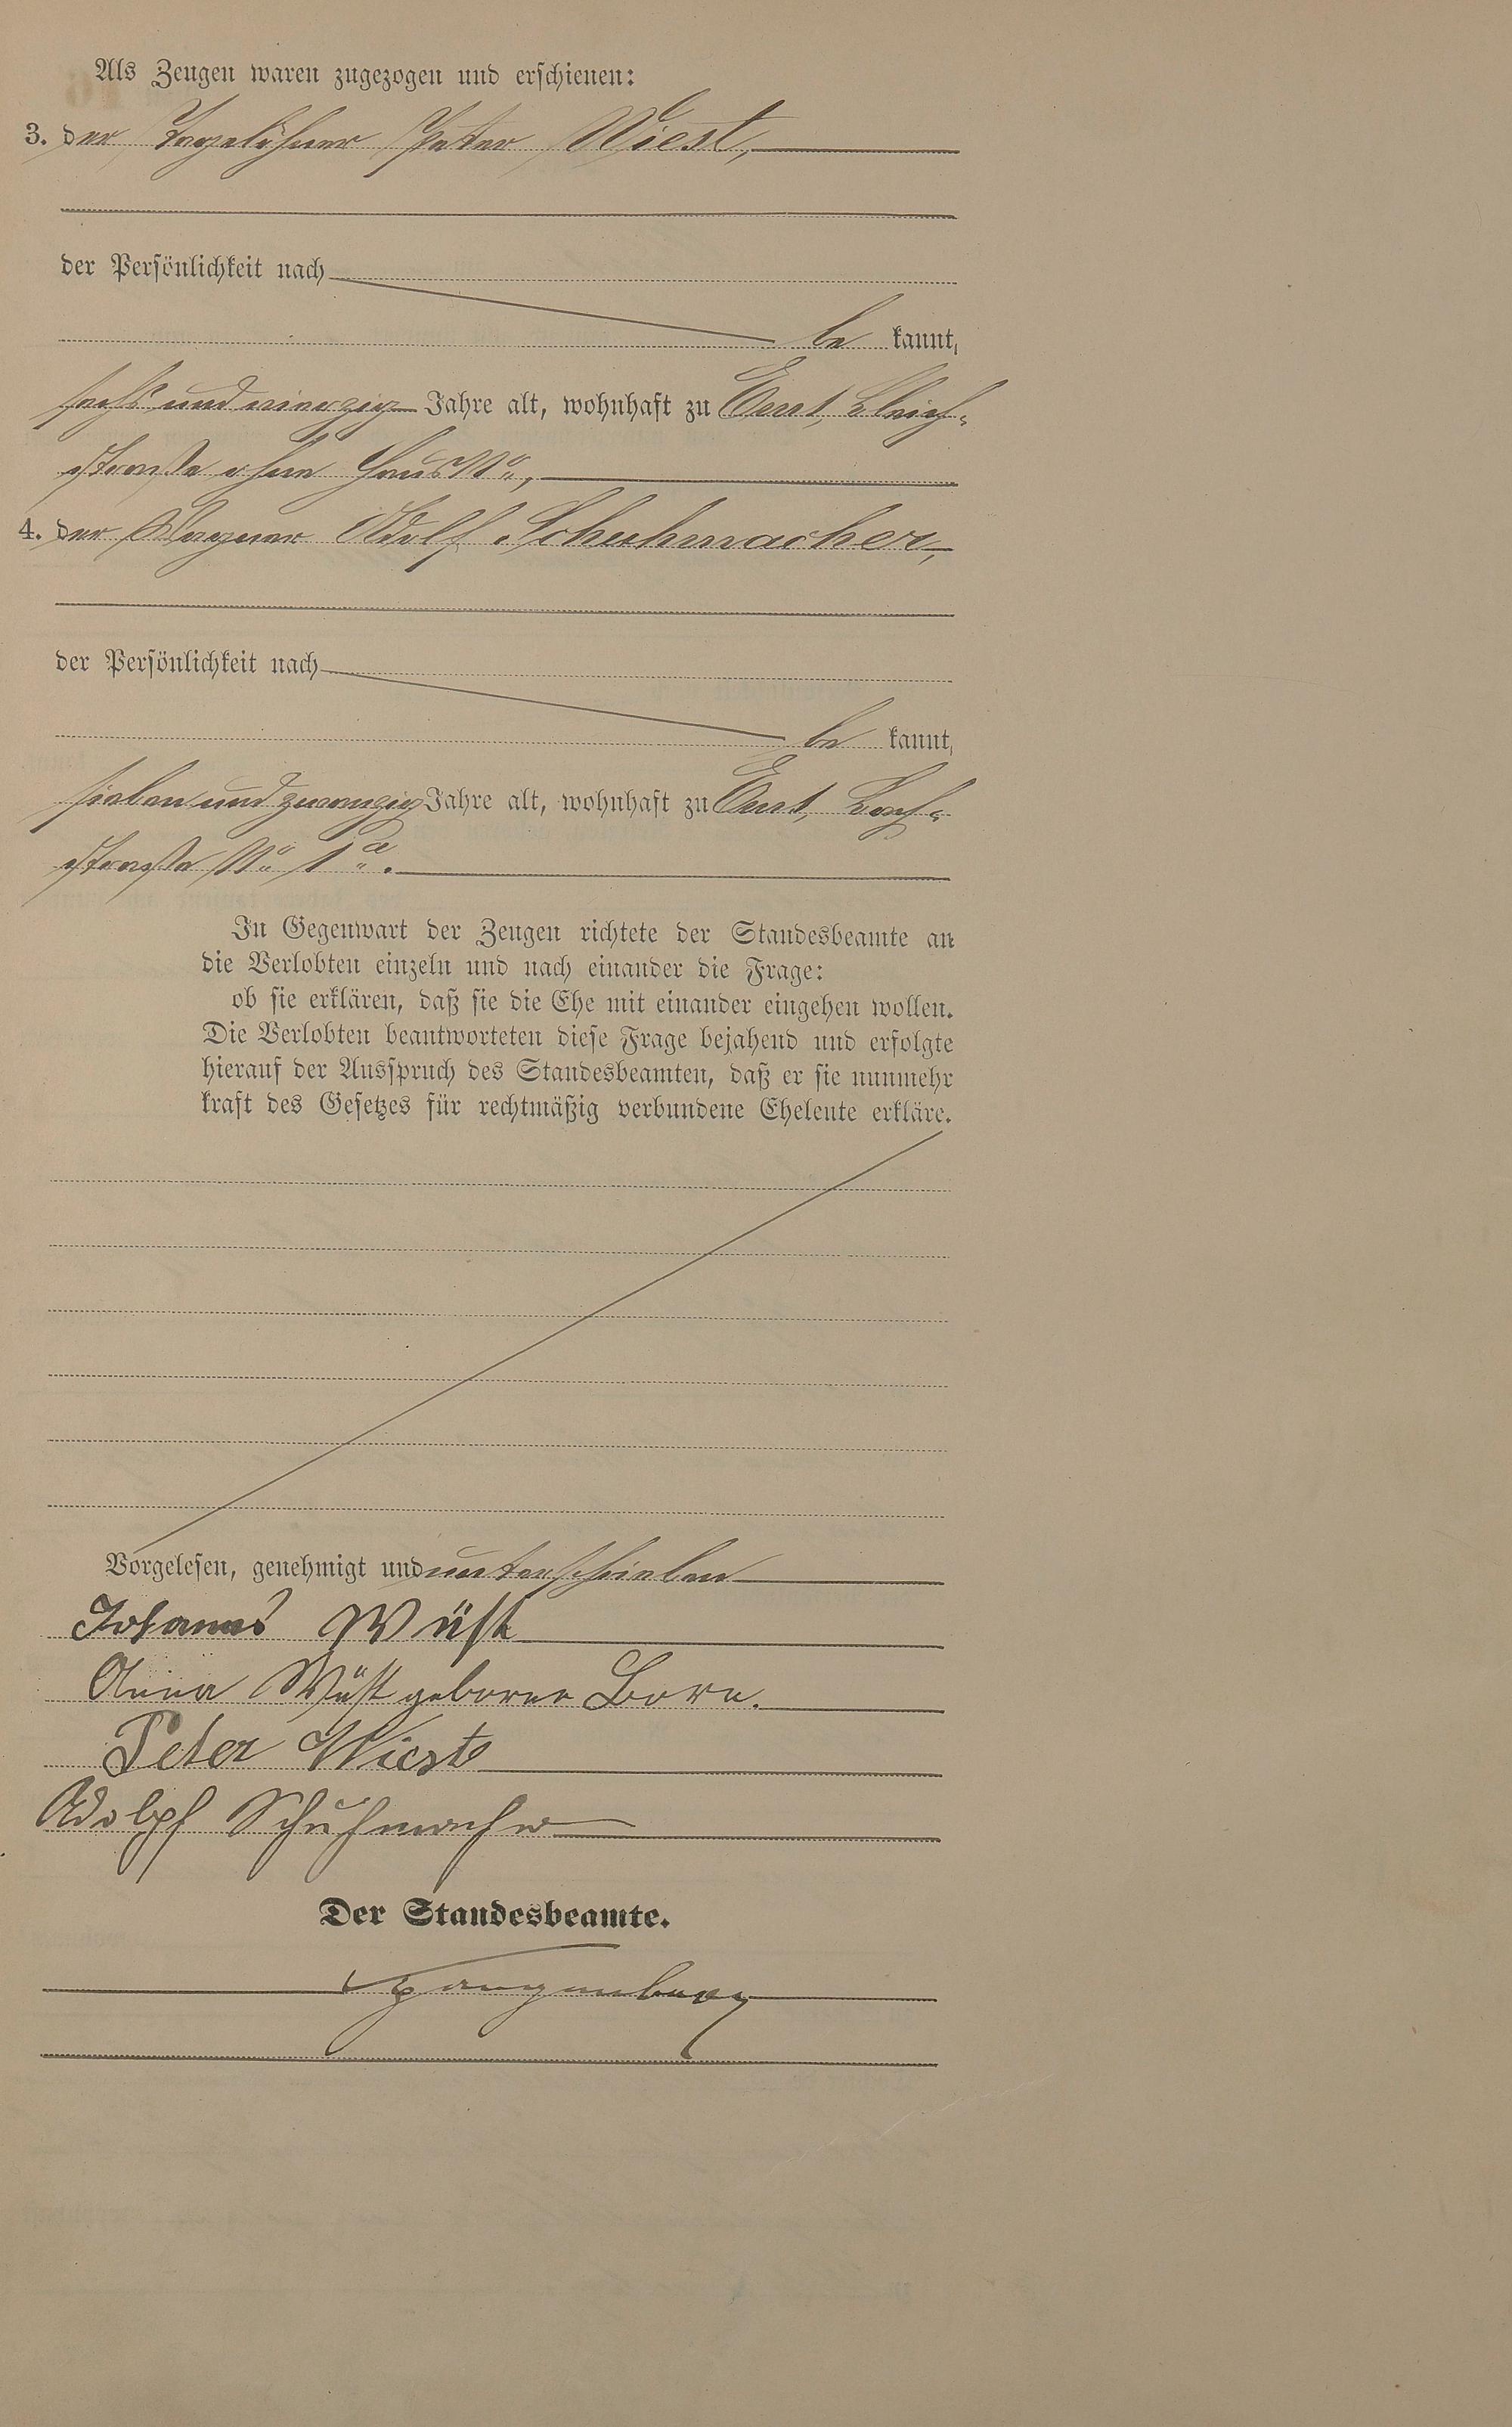 Als Zeugen waren zugezogen und erschienen:
3. der Tagelöhner Peter Wiest,
der Persönlichkeit nach
be kannt,
sechs und vierzig Jahre alt, wohnhaft zu Enst, Bleich-
straße ohne Haus No,
4. der Wagner Adolf Schuhmacher,
der Persönlichkeit nach
be kannt,
sieben und zwanzig Jahre alt, wohnhaft zu Enst, Bach-
straße No 1a.
In Gegenwart der Zeugen richtete der Standesbeamte an
die Verlobten einzeln und nach einander die Frage:
ob sie erklären, daß sie die Ehe mit einander eingehen wollen.
Die Verlobten beantworteten diese Frage bejahend und erfolgte
hierauf der Ausspruch des Standesbeamten, daß er sie nunmehr
kraft des Gesetzes für rechtmäßig verbundene Eheleute erkläre.
Vorgelesen, genehmigt und unterschrieben
Johannes Wüst
Anna Wüst geborne Born.
Peter Wiest
Adolpf Schuhmacher
Der Standesbeamte.